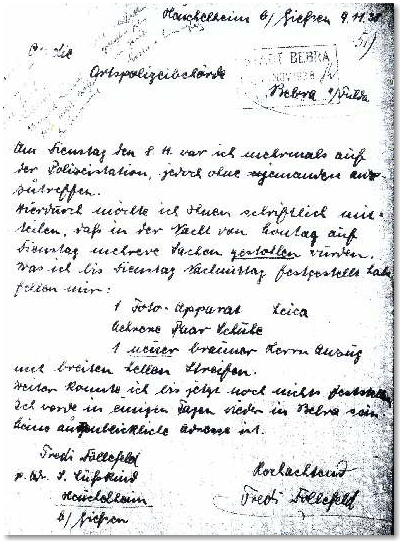 Heuchelheim b/ Gießen 9.11.38
An die
Ortspolizeibehörde
STADT BEBRA
NOV 1938
Bebra a/Fulda
Am Dienstag den 8 11. war ich mehrmals auf
der Polizeistation, jedoch ohne jemanden anzu-
zutreffen.
Hierdurch möchte ich Ihnen schriftlich mit-
teilen, daß in der Nacht von Montag auf
Dienstag mehrere Sachen gestohlen wurden.
Was ich bis Dienstag Nachmittag festgestellt habe
fehlen mir:
1 Foto-Apparat Leica
Mehrere Paar Schuhe
1 neuer brauner Herrn Anzug
mit breiten hellen Streifen.
Weiter konnte ich bis jetzt noch nichts feststellen
Ich werde in einigen Tagen wieder in Bebra sein
Meine augenblickliche Adresse ist.
Fredi Sollefeld
p. Adr. S. Süßkind
Heuchelheim
b/ Gießen
Hochachtend
Fredi Sollefeld